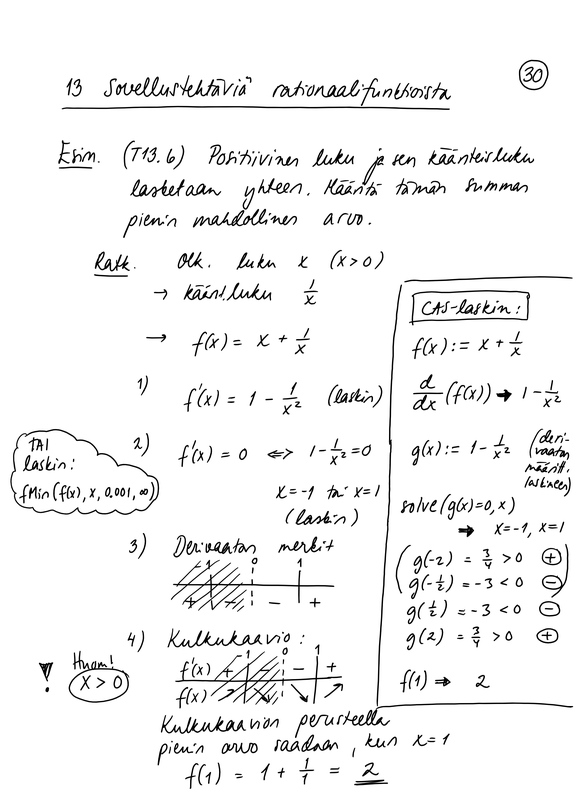 30
13 Sovellustehtäviä rationaalifunktioista
Esim. (T13.6) Positiivinen luku ja sen käänteisluku
lasketaan yhteen. Määritä tämän summan
pienin mahdollinen arvo.
Ratk. Olk. luku x (x>0)
→ käänt.luku 1/x
→ f(x) = x + 1/x
1) f'(x) = 1 - 1/x² (laskin)
2) f'(x) = 0 ⇔ 1-1/x²=0
x=-1 tai x=1
(laskin)
TAI
laskin:
fMin(f(x), x, 0.001, ∞)
3) Derivaatan merkit
-1 0 1
+ - - +
4) Kulkukaavio:
-1 0 1
f'(x) + - - +
f(x) ↗ ↘ ↘ ↗
! Huom!
x > 0
Kulkukaavion perusteella
pienin arvo saadaan, kun x=1
f(1) = 1 + 1/1 = 2
CAS-laskin:
f(x) := x + 1/x
d/dx (f(x)) → 1 - 1/x²
g(x) := 1 - 1/x² (deri-
vaatan
määritt.
laskimeen)
solve(g(x)=0, x)
→ x=-1, x=1
(g(-2) = 3/4 >0 +
g(-1/2) = -3 < 0 -)
g(1/2) = -3 < 0 -
g(2) = 3/4 > 0 +
f(1) → 2